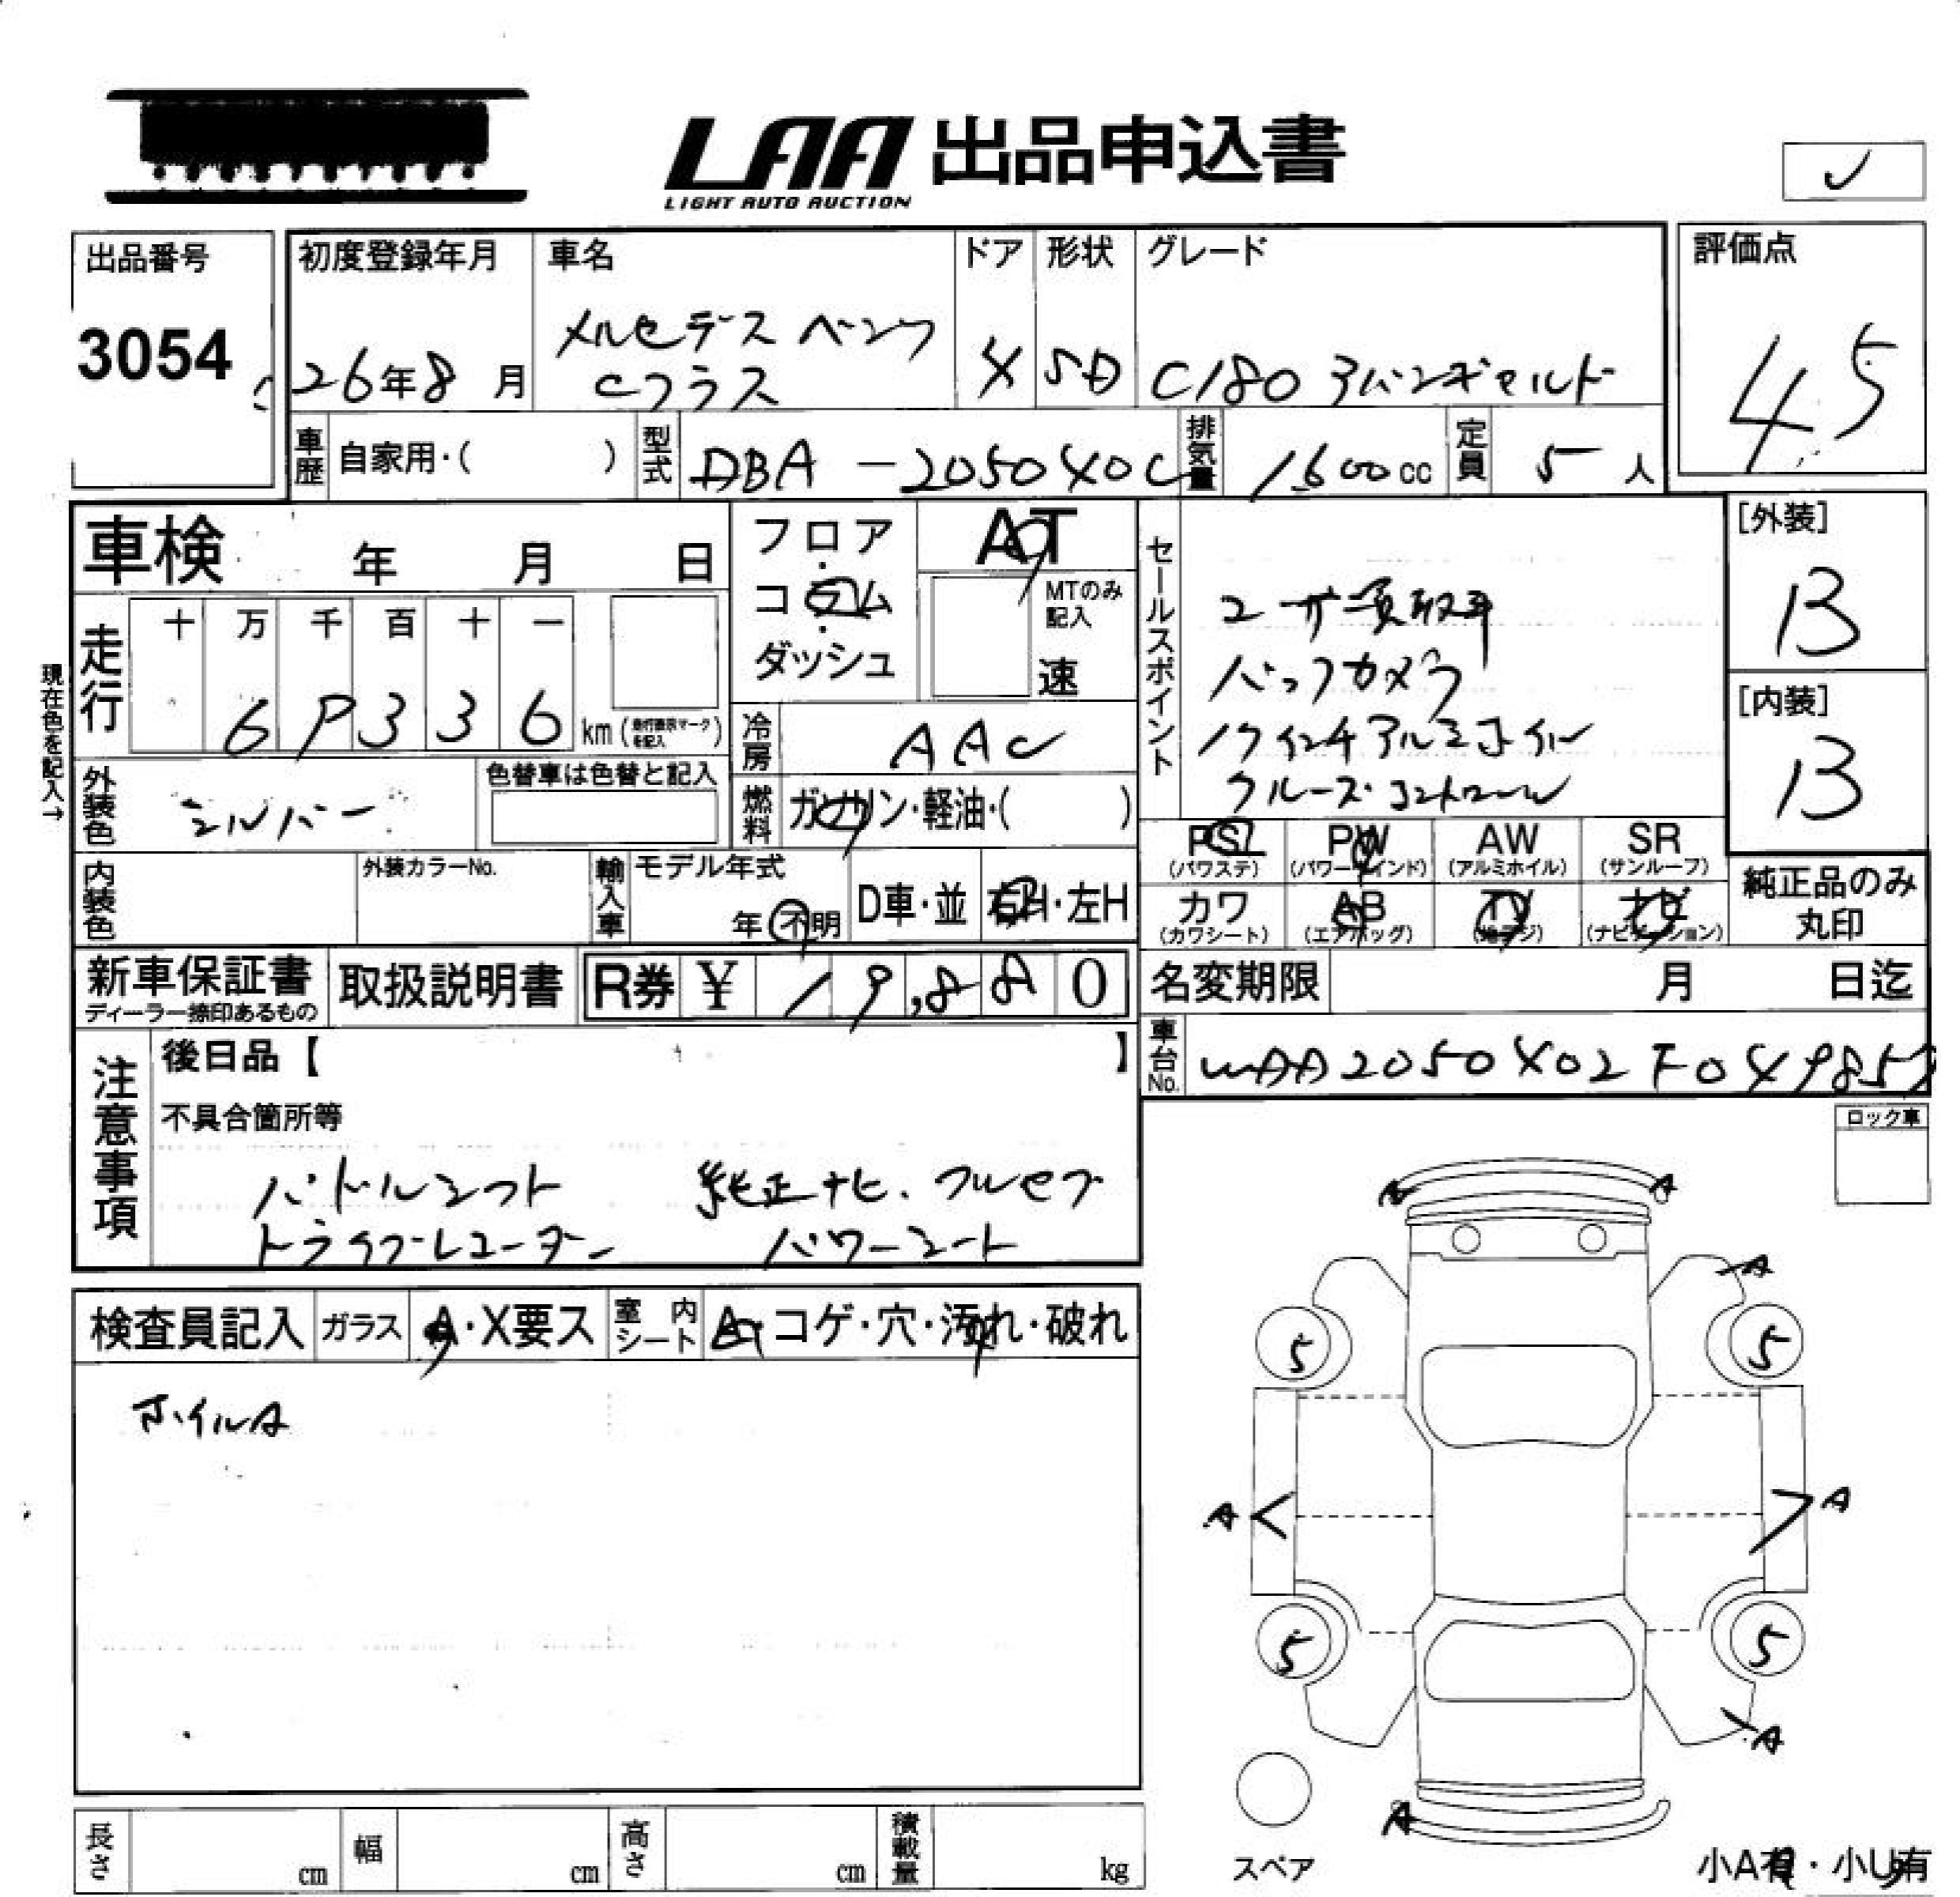 LAA 出品申込書
LIGHT AUTO AUCTION
出品番号
3054
初度登録年月
26年8月
車名
メルセデスベンツ
Cクラス
ドア
4
形状
SD
グレード
C180 アバンギャルド
評価点
4.5
車歴
自家用・( )
型式
DBA-205040C
排気量
1600cc
定員
5人
車検 年 月 日
フロア
・
コラム
・
ダッシュ
AT
MTのみ
記入
速
セールスポイント
ユーザー買取車
バックカメラ
17インチアルミホイル
クルーズコントロール
[外装]
B
[内装]
B
現在色を記入→
走行
十 万 千 百 十 一
6 9 3 3 6
km (走行表示マークを記入)
冷房
AAC
外装色
シルバー
色替車は色替と記入
燃料
ガソリン・軽油・( )
PS
(パワステ)
PW
(パワーウインド)
AW
(アルミホイル)
SR
(サンルーフ)
内装色
外装カラーNo.
輸入車
モデル年式
年 不明
D車・並
右H・左H
カワ
(カワシート)
AB
(エアバッグ)
TV
(地デジ)
ナビ
(ナビゲーション)
純正品のみ
丸印
新車保証書
ディーラー捺印あるもの
取扱説明書
R券 ¥ 19,880
名変期限 月 日迄
車台No.
注意事項
後日品【 】
不具合箇所等
パドルシフト 純正ナビ、フルセグ
ドライブレコーダー パワーシート
ロック車
検査員記入
ガラス
A・X要ス
室内シート
A・コゲ・穴・汚れ・破れ
ホイルA
A A
A
5 5
A A
5 5
A
A
スペア
小A有・小U有
長さ cm
幅 cm
高さ cm
積載量 kg